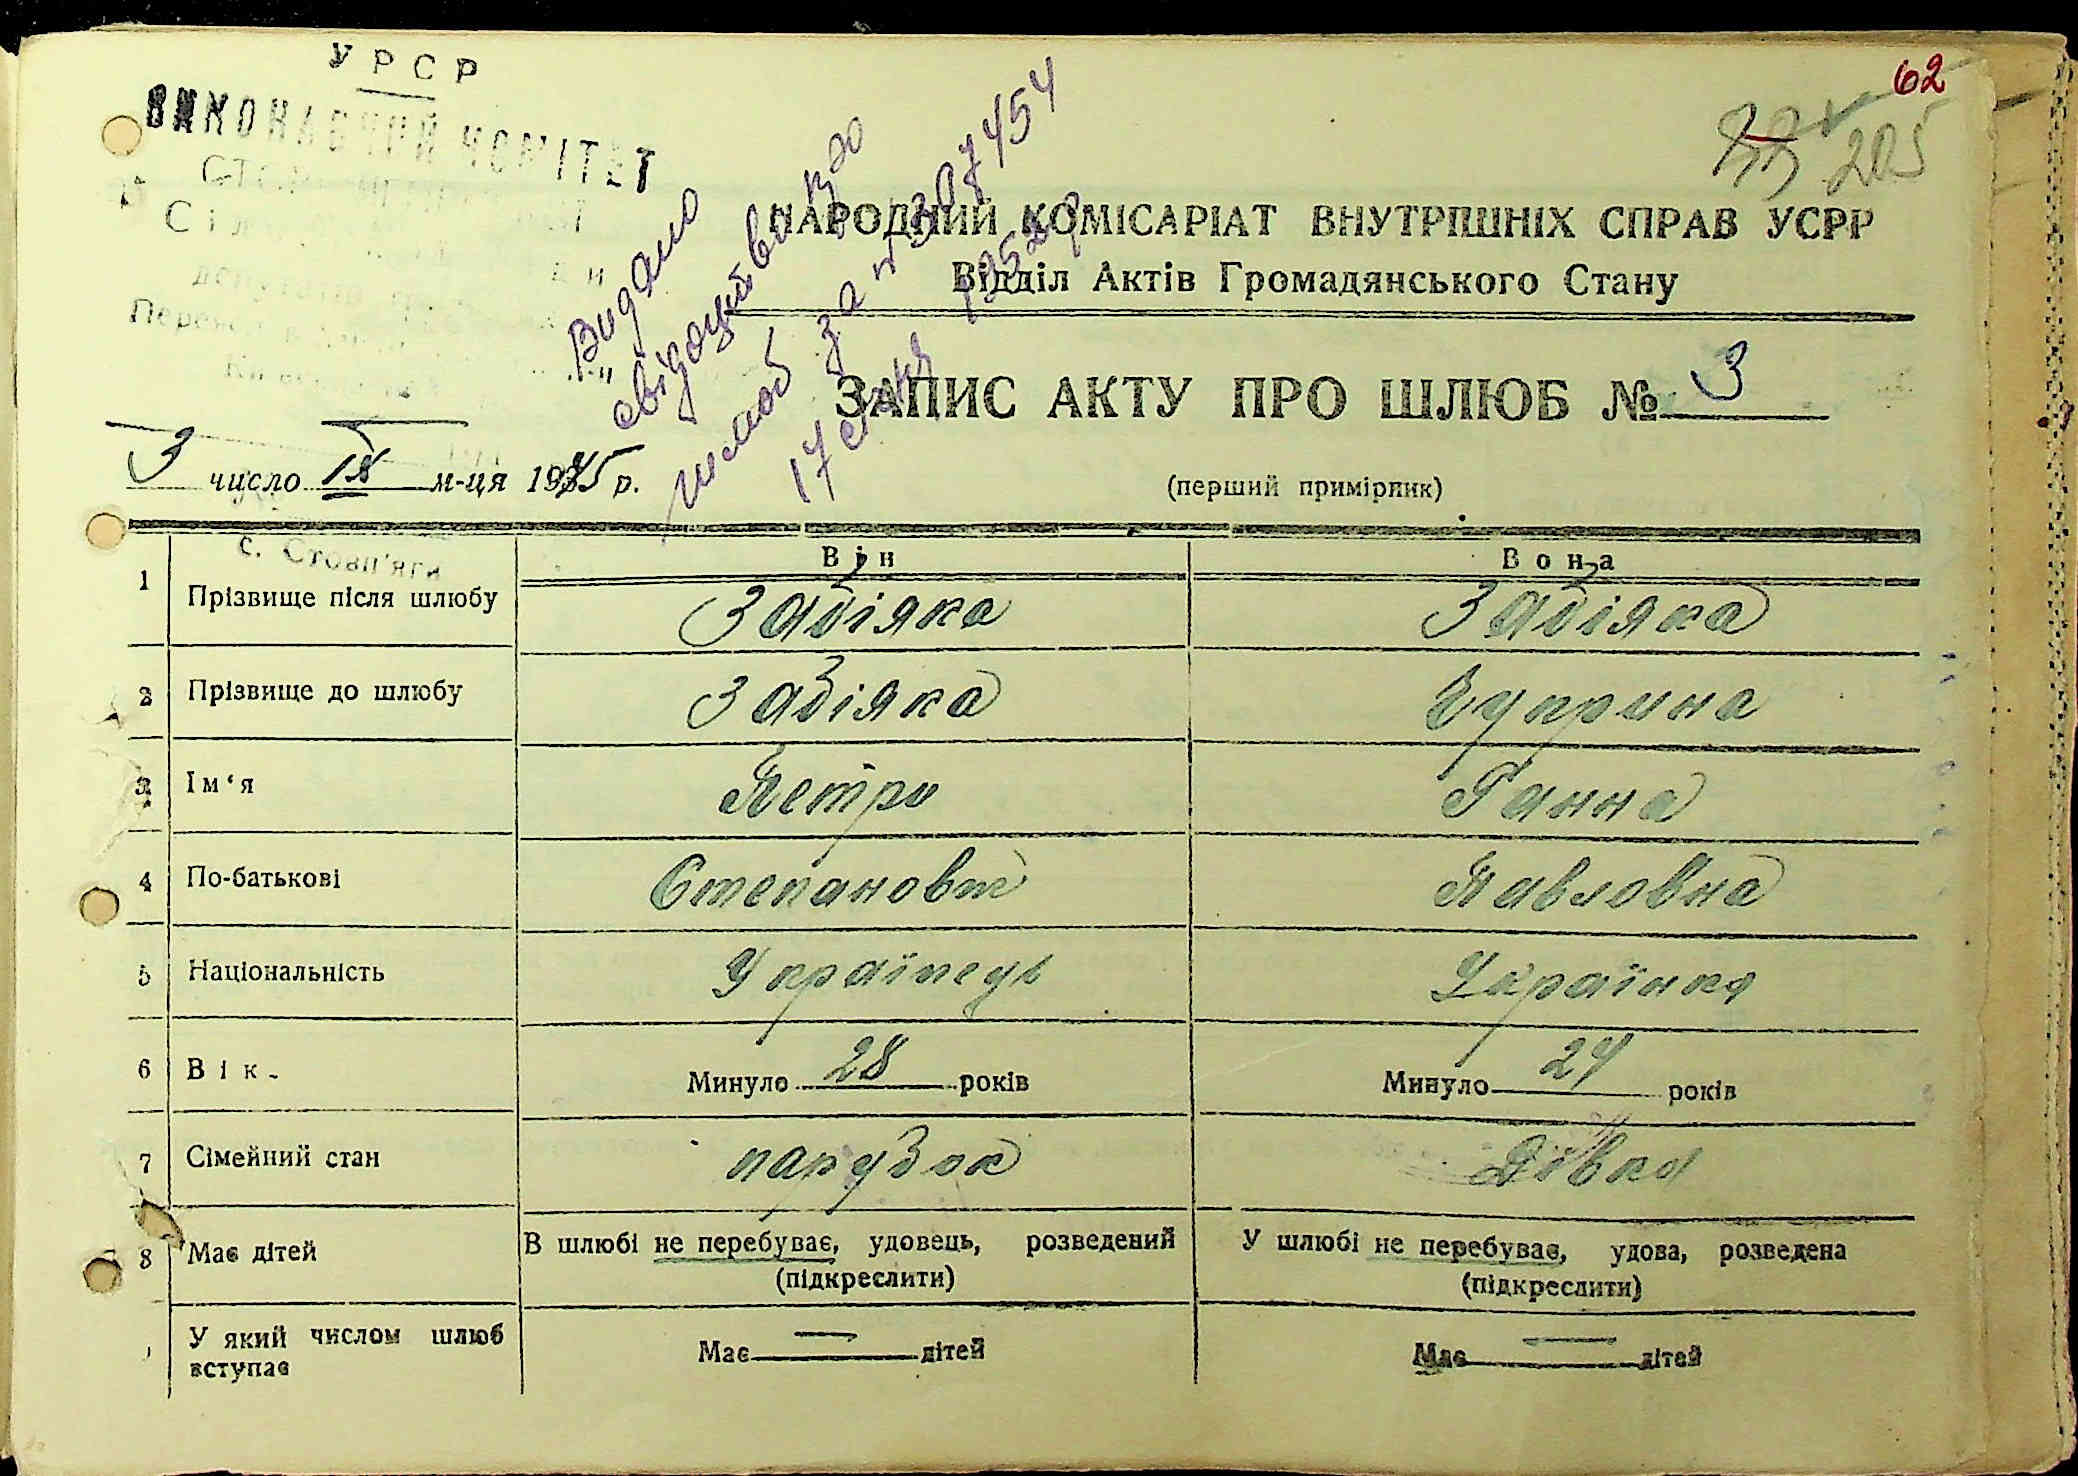 УРСР
ВИКОНАВЧИЙ КОМІТЕТ
депутатів
с. Стовп'яги
62
205
Видано
свідоцтво про
шлюб за № 307454
17 1952 р
НАРОДНИЙ КОМІСАРІАТ ВНУТРІШНІХ СПРАВ УСРР
Відділ Актів Громадянського Стану
ЗАПИС АКТУ ПРО ШЛЮБ № 3
3 число IX м-ця 1945 р.
(перший примірник)
Він Вона
1 Прізвище після шлюбу Забіяка Забіяка
2 Прізвище до шлюбу Забіяка Чуприна
3 Ім'я Петро Ганна
4 По-батькові Степанович Павловна
5 Національність Українець Українка
6 Вік. Минуло 28 років Минуло 24 років
7 Сімейний стан парубок Дівка
8 Має дітей В шлюбі не перебуває, удовець, розведений У шлюбі не перебуває, удова, розведена
(підкреслити) (підкреслити)
У який числом шлюб вступає Має — дітей Має — дітей